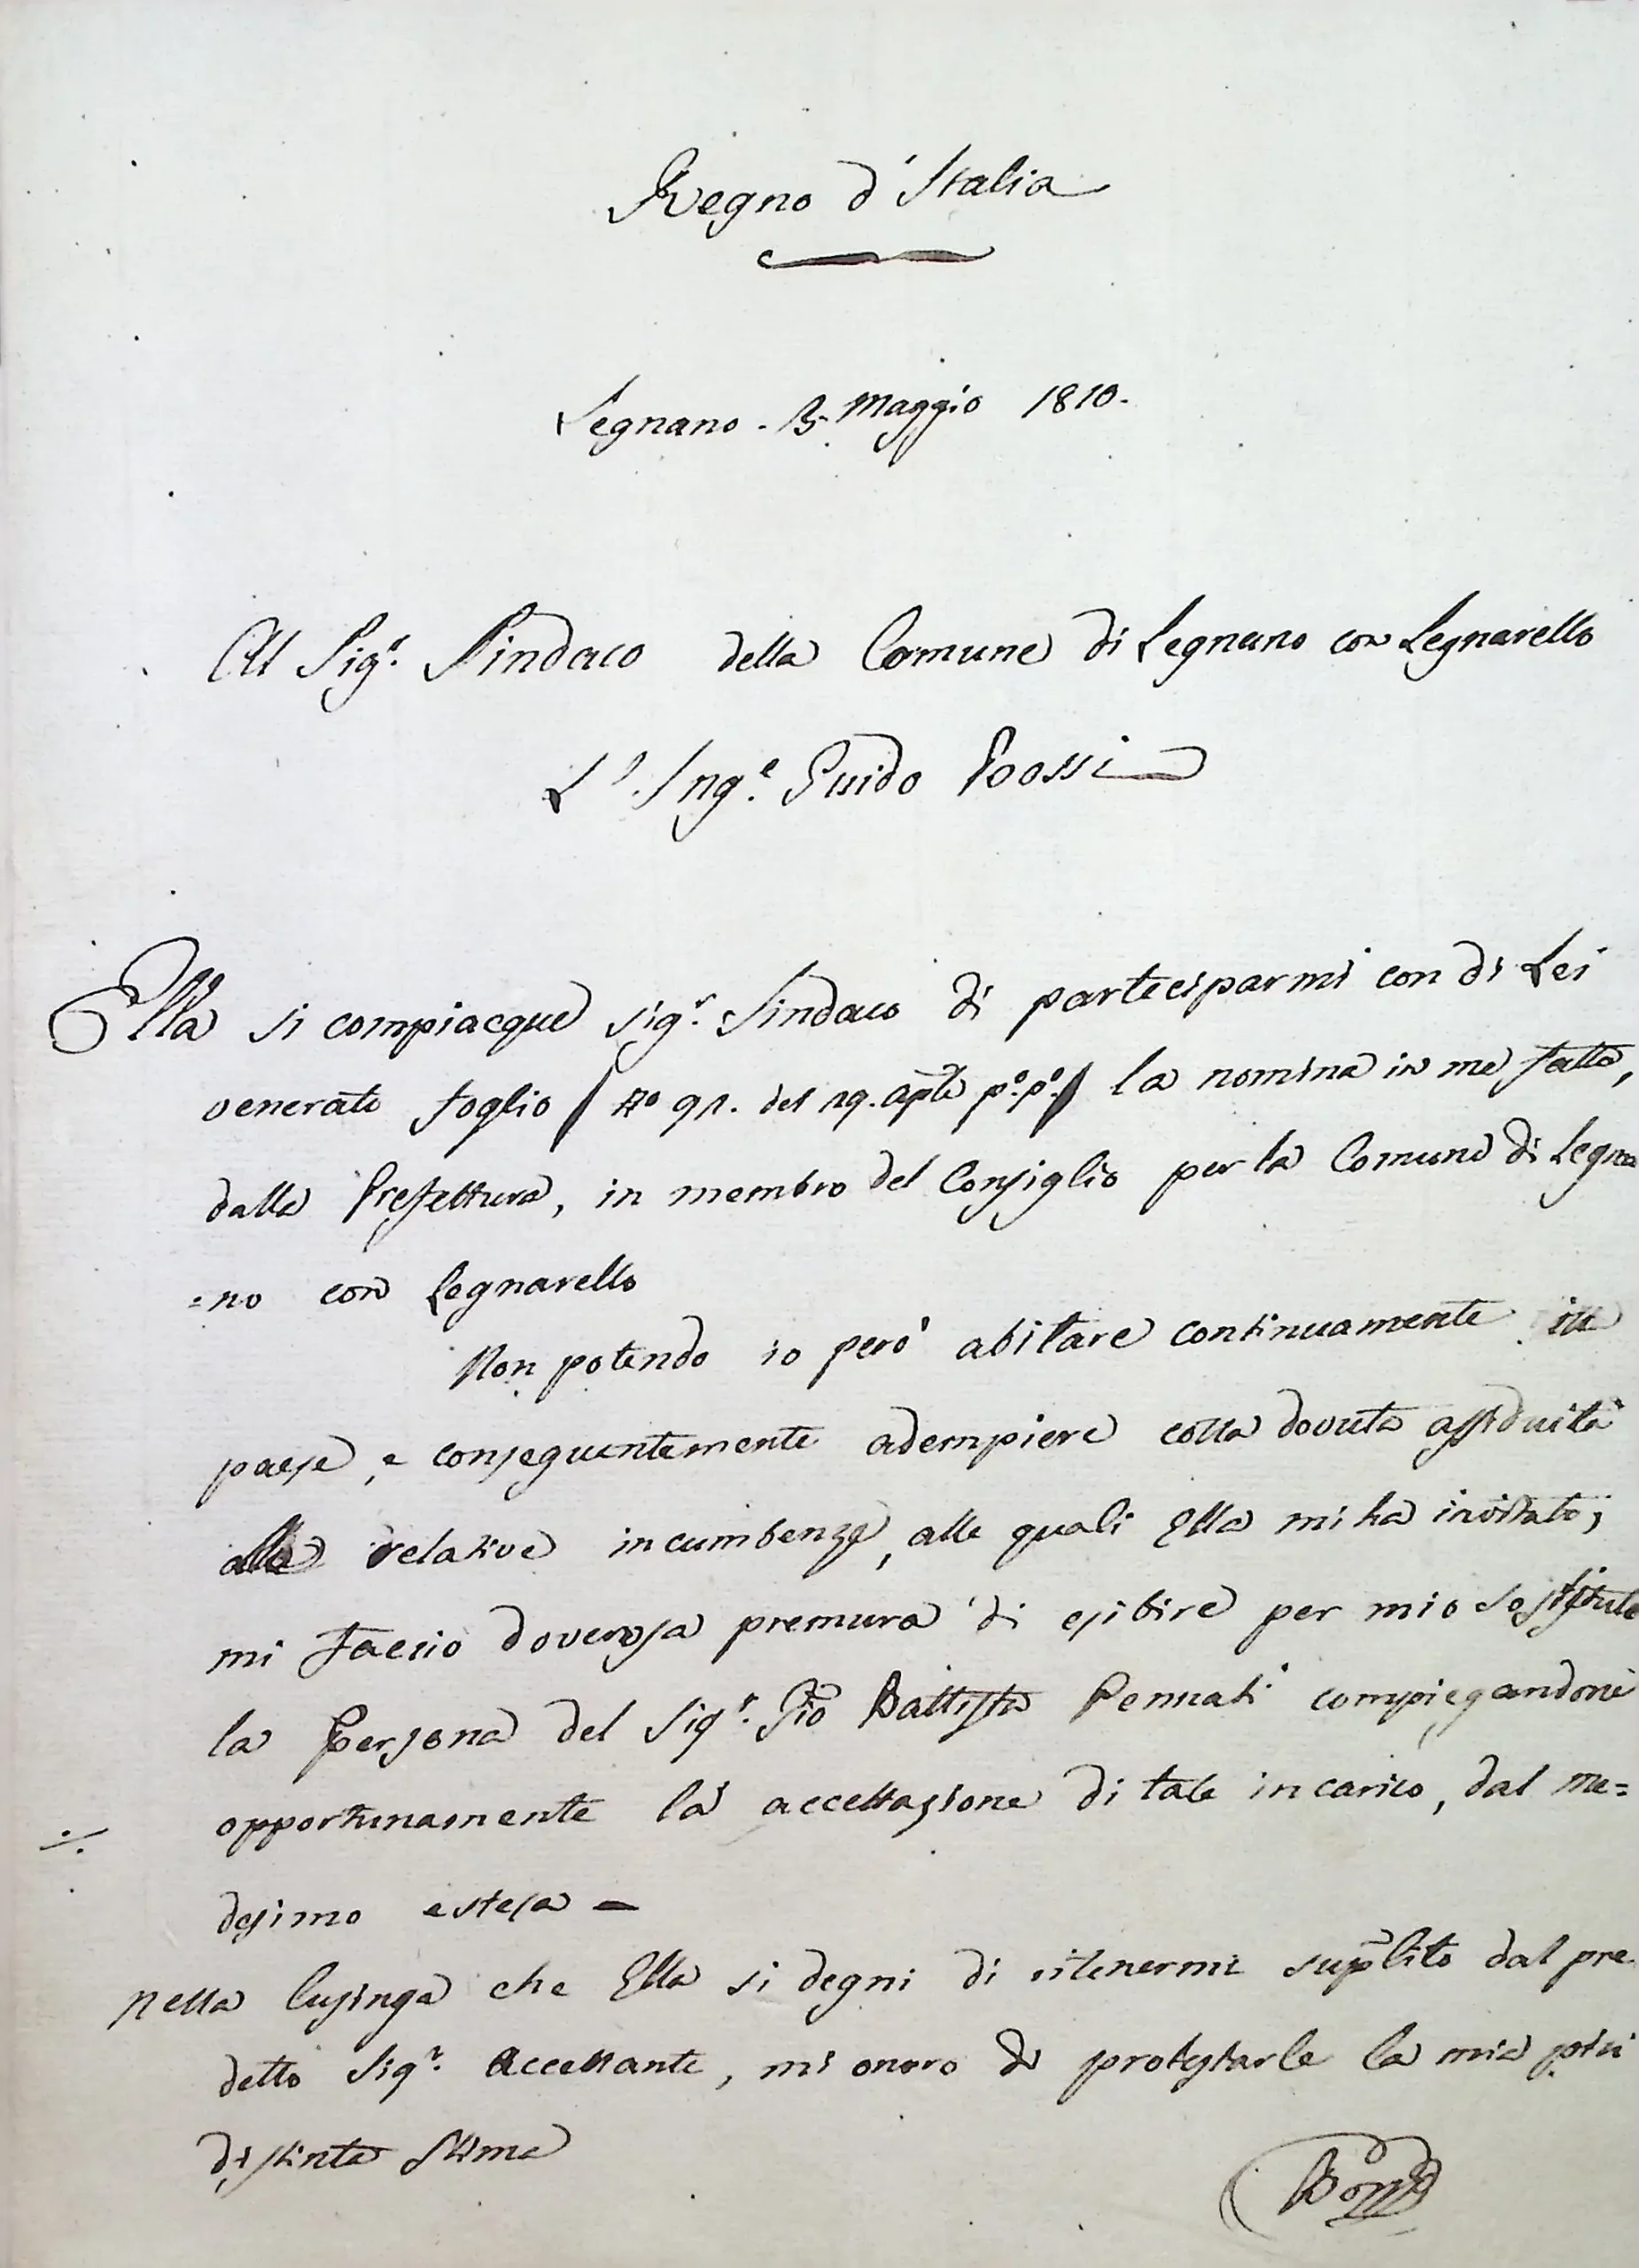 Regno d'Italia
Legnano. 3. Maggio 1810.
Al Sigr. Sindaco della Comune di Legnano con Legnarello
L'Inge. Guido Rossi
Ella si compiacque Sigr. Sindaco di parteciparmi con di Lei
venerato foglio / No 91. del 29. Aple po. po. / la nomina in me fatta,
dalla Prefettura, in membro del Consiglio per la Comune di Legna
=no con Legnarello
Non potendo io però abitare continuamente in
paese, e conseguentemente adempiere colla dovuta assiduità
alle relative incumbenze, alle quali Ella mi ha invitato;
mi faccio doverosa premura di esibire per mio sostituto
la Persona del Sigr. Gio Battista Pennati compiegandone
opportunamente la accettazione di tale incarico, dal me=
desimo estesa -
Nella lusinga che Ella si degni di ritenermi supplito dal pre
detto Sigr. Accettante, mi onoro di protestarle la mia più
distinta stima
Rossi